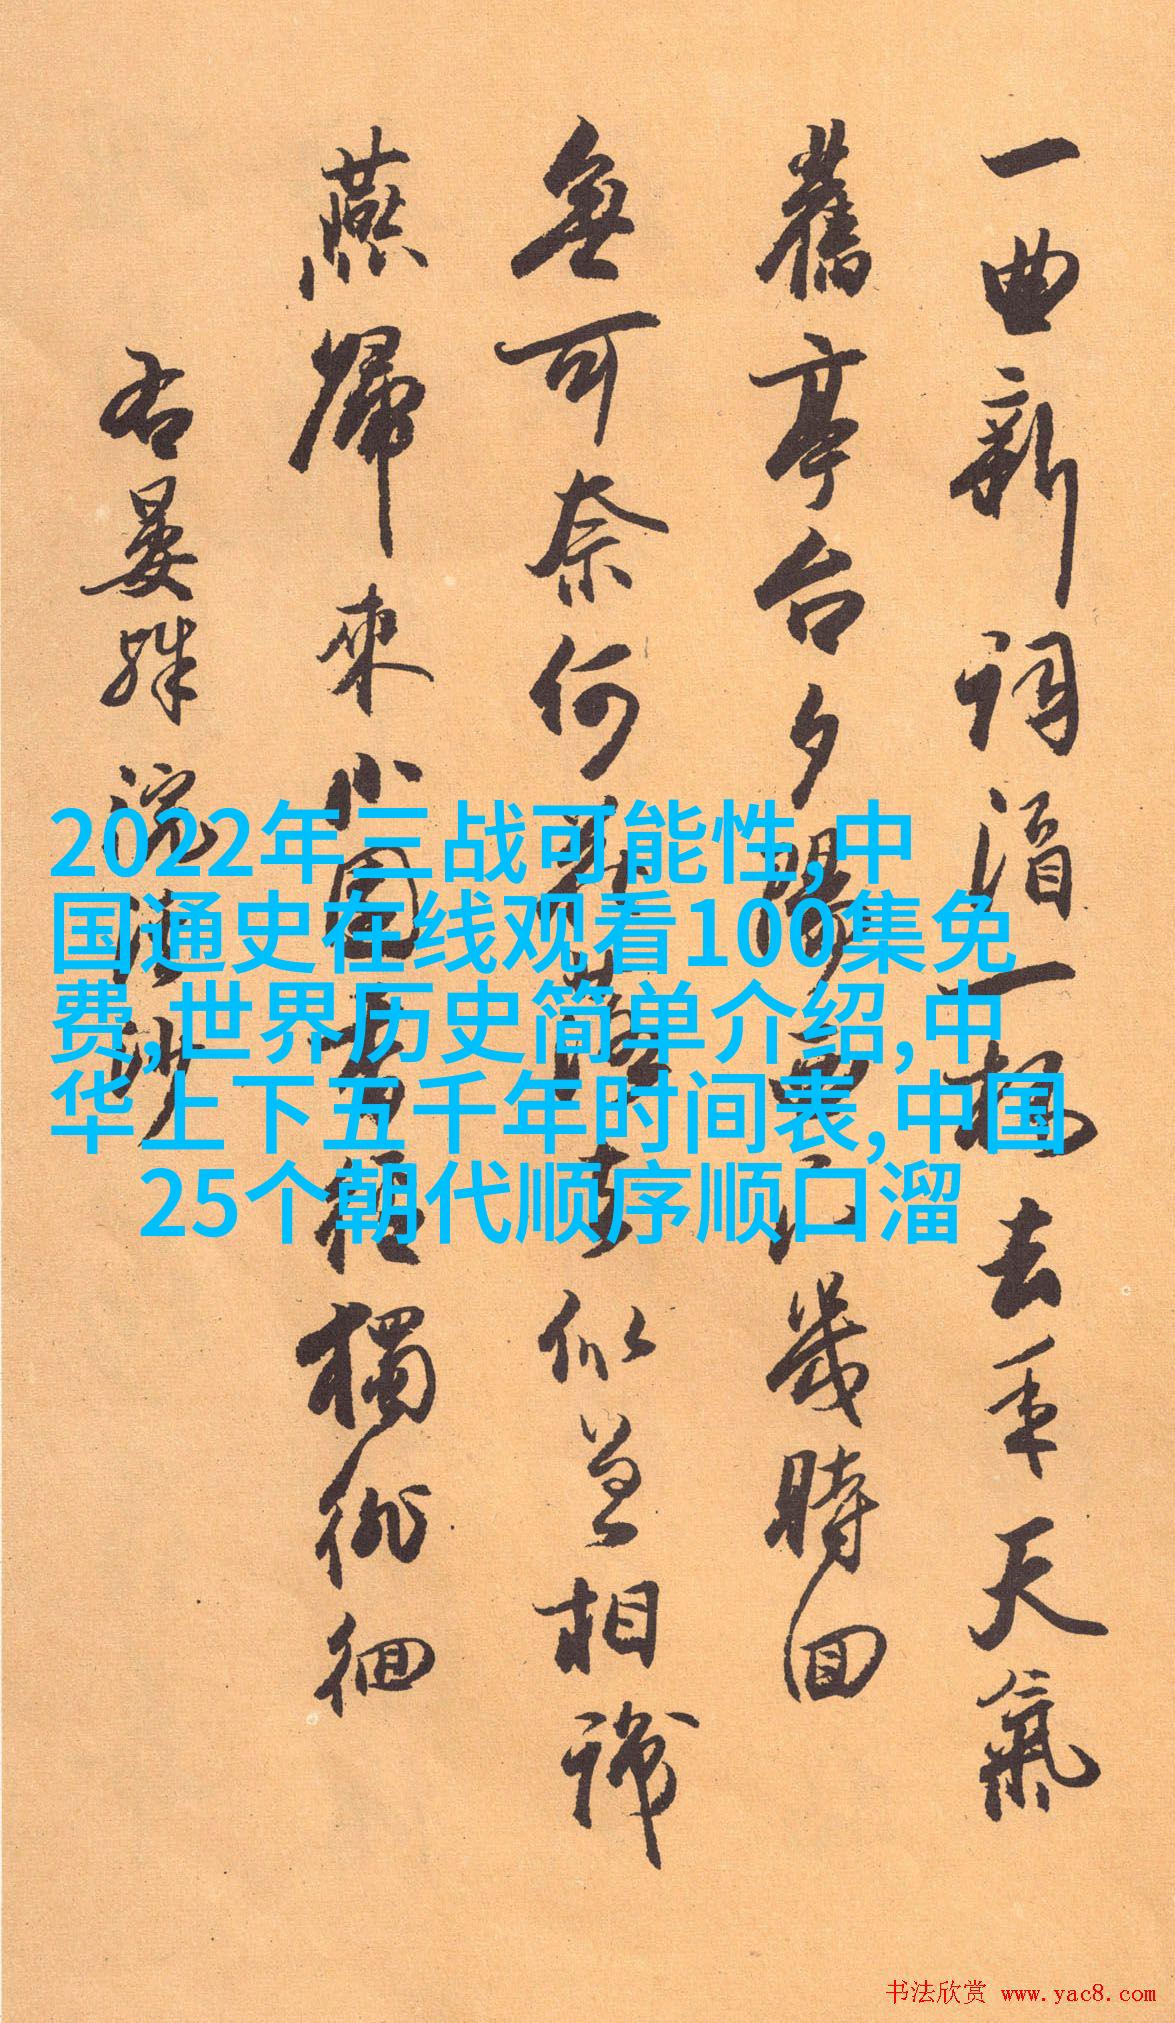 一曲新詞酒一杯去年天氣
舊亭台夕陽西下幾時回
無可奈何花落去似曾相識
燕歸來小園香徑獨徘徊
右晏殊浣溪沙
2022年三战可能性,中
国通史在线观看100集免
费,世界历史简单介绍,中
华上下五千年时间表,中国
25个朝代顺序顺口溜
书法欣赏 www.yac8.com